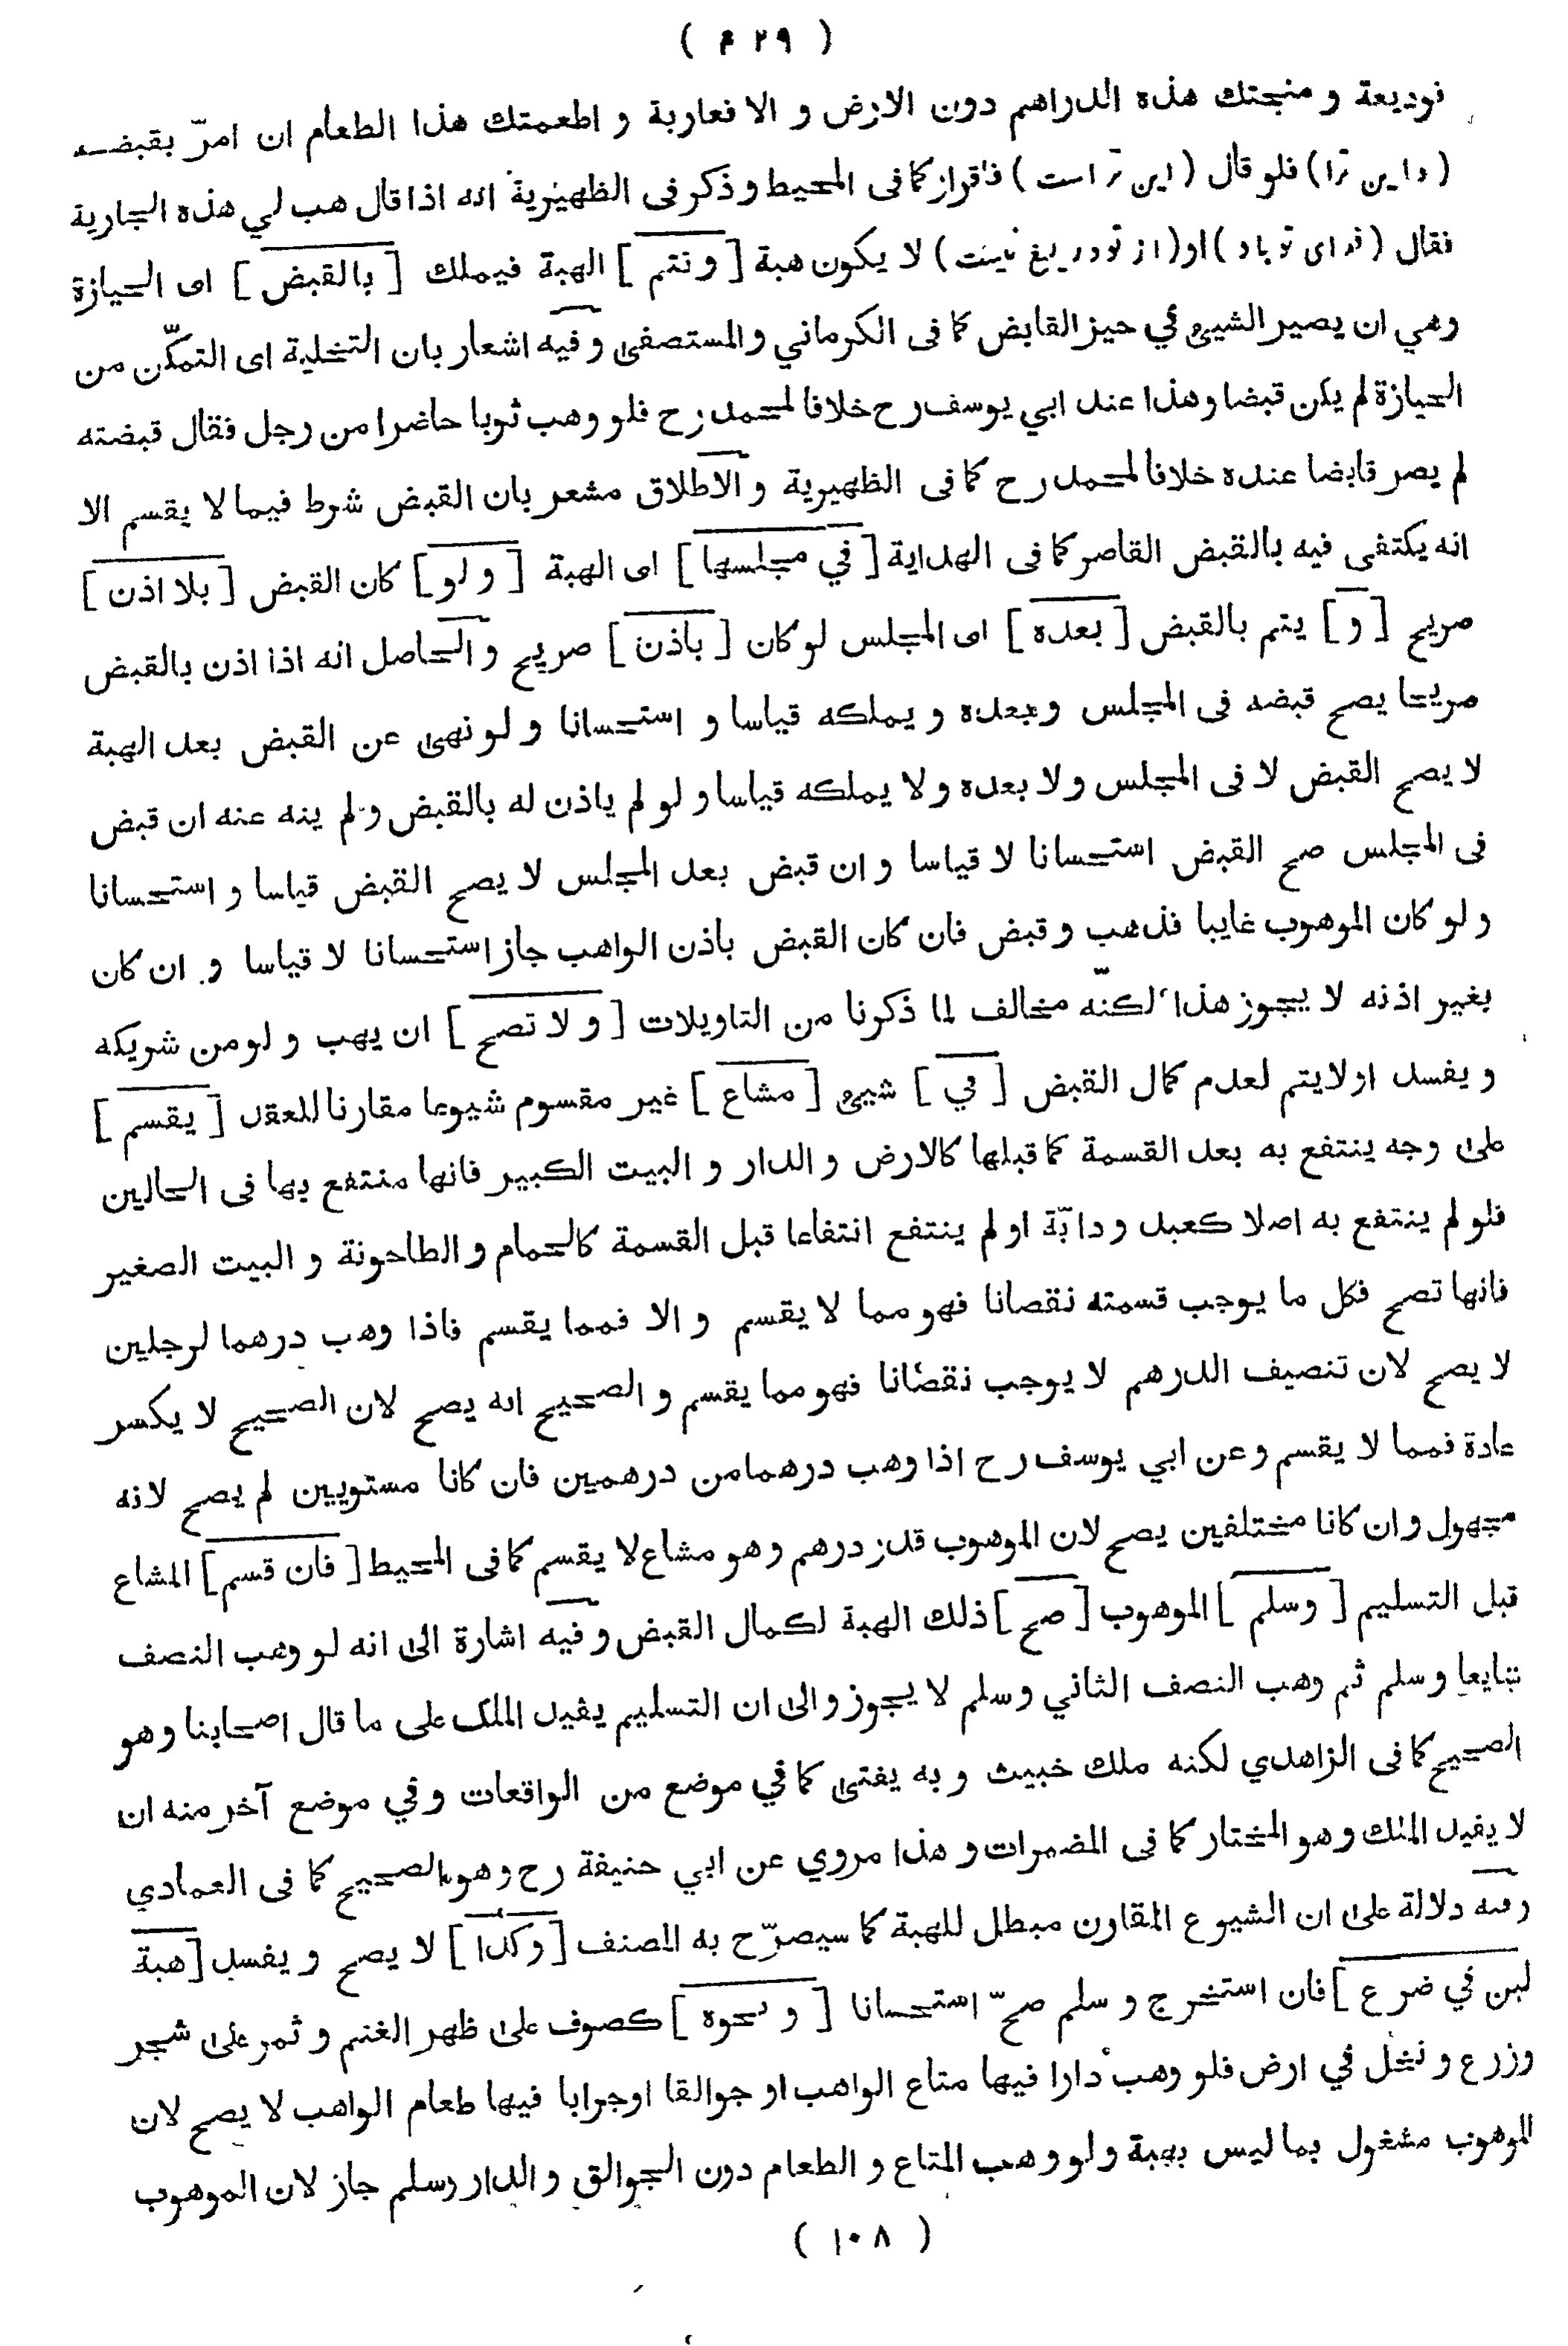 ( ۴۲۹ )
فوديعة و منحتك هذه الدراهم دون الارض و الا فعارية و اطعمتك هذا الطعام ان امرّ بقبضه
( داين ترا ) فلو قال ( اين تراست ) فاقرار كما فى المحيط و ذكر فى الظهيرية انه اذا قال هب لي هذه الجارية
فقال ( فداى تو باد ) او ( از تو دريغ نيست ) لا يكون هبة [ و نتم ] الهبة فيملك [ بالقبض ] اى الحيازة
وهي ان يصير الشيئ في حيز القابض كما فى الكرماني والمستصفى و فيه اشعار بان التخلية اى التمكّن من
الحيازة لم يكن قبضا وهذا عند ابي يوسف رح خلافا لمحمد رح فلو وهب ثوبا حاضرا من رجل فقال قبضته
لم يصر قابضا عنده خلافا لمحمد رح كما فى الظهيرية و الاطلاق مشعر بان القبض شرط فيما لا يقسم الا
انه يكتفى فيه بالقبض القاصر كما فى الهداية [ في مجلسها ] اى الهبة [ و لو ] كان القبض [ بلا اذن ]
صريح [ و ] يتم بالقبض [ بعده ] اى المجلس لو كان [ باذن ] صريح و الحاصل انه اذا اذن بالقبض
صريحا يصح قبضه فى المجلس وبعده و يملكه قياسا و استحسانا و لو نهى عن القبض بعد الهبة
لا يصح القبض لا فى المجلس ولا بعده ولا يملكه قياسا و لو لم ياذن له بالقبض و لم ينه عنه ان قبض
فى المجلس صح القبض استحسانا لا قياسا و ان قبض بعد المجلس لا يصح القبض قياسا و استحسانا
و لو كان الموهوب غايبا فذهب و قبض فان كان القبض باذن الواهب جاز استحسانا لا قياسا و ان كان
بغير اذنه لا يجوز هذا لكنّه مخالف لما ذكرنا من التاويلات [ و لا تصح ] ان يهب و لو من شريكه
و يفسد اولايتم لعدم كمال القبض [ في ] شيئ [ مشاع ] غير مقسوم شيوعا مقارنا للعقد [ يقسم ]
على وجه ينتفع به بعد القسمة كما قبلها كالارض و الدار و البيت الكبير فانها منتفع بها فى الحالين
فلو لم ينتفع به اصلا كعبد و دابّة او لم ينتفع انتفاعا قبل القسمة كالحمام و الطاحونة و البيت الصغير
فانها تصح فكل ما يوجب قسمته نقصانا فهو مما لا يقسم و الا فمما يقسم فاذا وهب درهما لرجلين
لا يصح لان تنصيف الدرهم لا يوجب نقصانا فهو مما يقسم و الصحيح انه يصح لان الصحيح لا يكسر
عادة فمما لا يقسم و عن ابي يوسف رح اذا وهب درهما من درهمين فان كانا مستويين لم يصح لانه
مجهول و ان كانا مختلفين يصح لان الموهوب قدر درهم و هو مشاع لا يقسم كما فى المحيط [ فان قسم ] المشاع
قبل التسليم [ وسلم ] الموهوب [ صح ] ذلك الهبة لكمال القبض و فيه اشارة الى انه لو وهب النصف
شايعا و سلم ثم وهب النصف الثاني و سلم لا يجوز والى ان التسليم يفيد الملك على ما قال اصحابنا و هو
الصحيح كما فى الزاهدي لكنه ملك خبيث و به يفتى كما في موضع من الواقعات و في موضع آخر منه ان
لا يفيد الملك و هو المختار كما فى المضمرات و هذا مروي عن ابي حنيفة رح و هو الصحيح كما فى العمادي
وفيه دلالة على ان الشيوع المقارن مبطل للهبة كما سيصرّح به المصنف [ و كذا ] لا يصح و يفسد [ هبة
لبن في ضرع ] فان استخرج و سلم صحّ استحسانا [ و نحوه ] كصوف على ظهر الغنم و ثمر على شجر
وزرع و نخل في ارض فلو وهب دارا فيها متاع الواهب او جوالقا اوجرابا فيها طعام الواهب لا يصح لان
الموهوب مشغول بما ليس بهبة و لو وهب المتاع و الطعام دون الجوالق و الدار وسلم جاز لان الموهوب
( ١٠٨ )